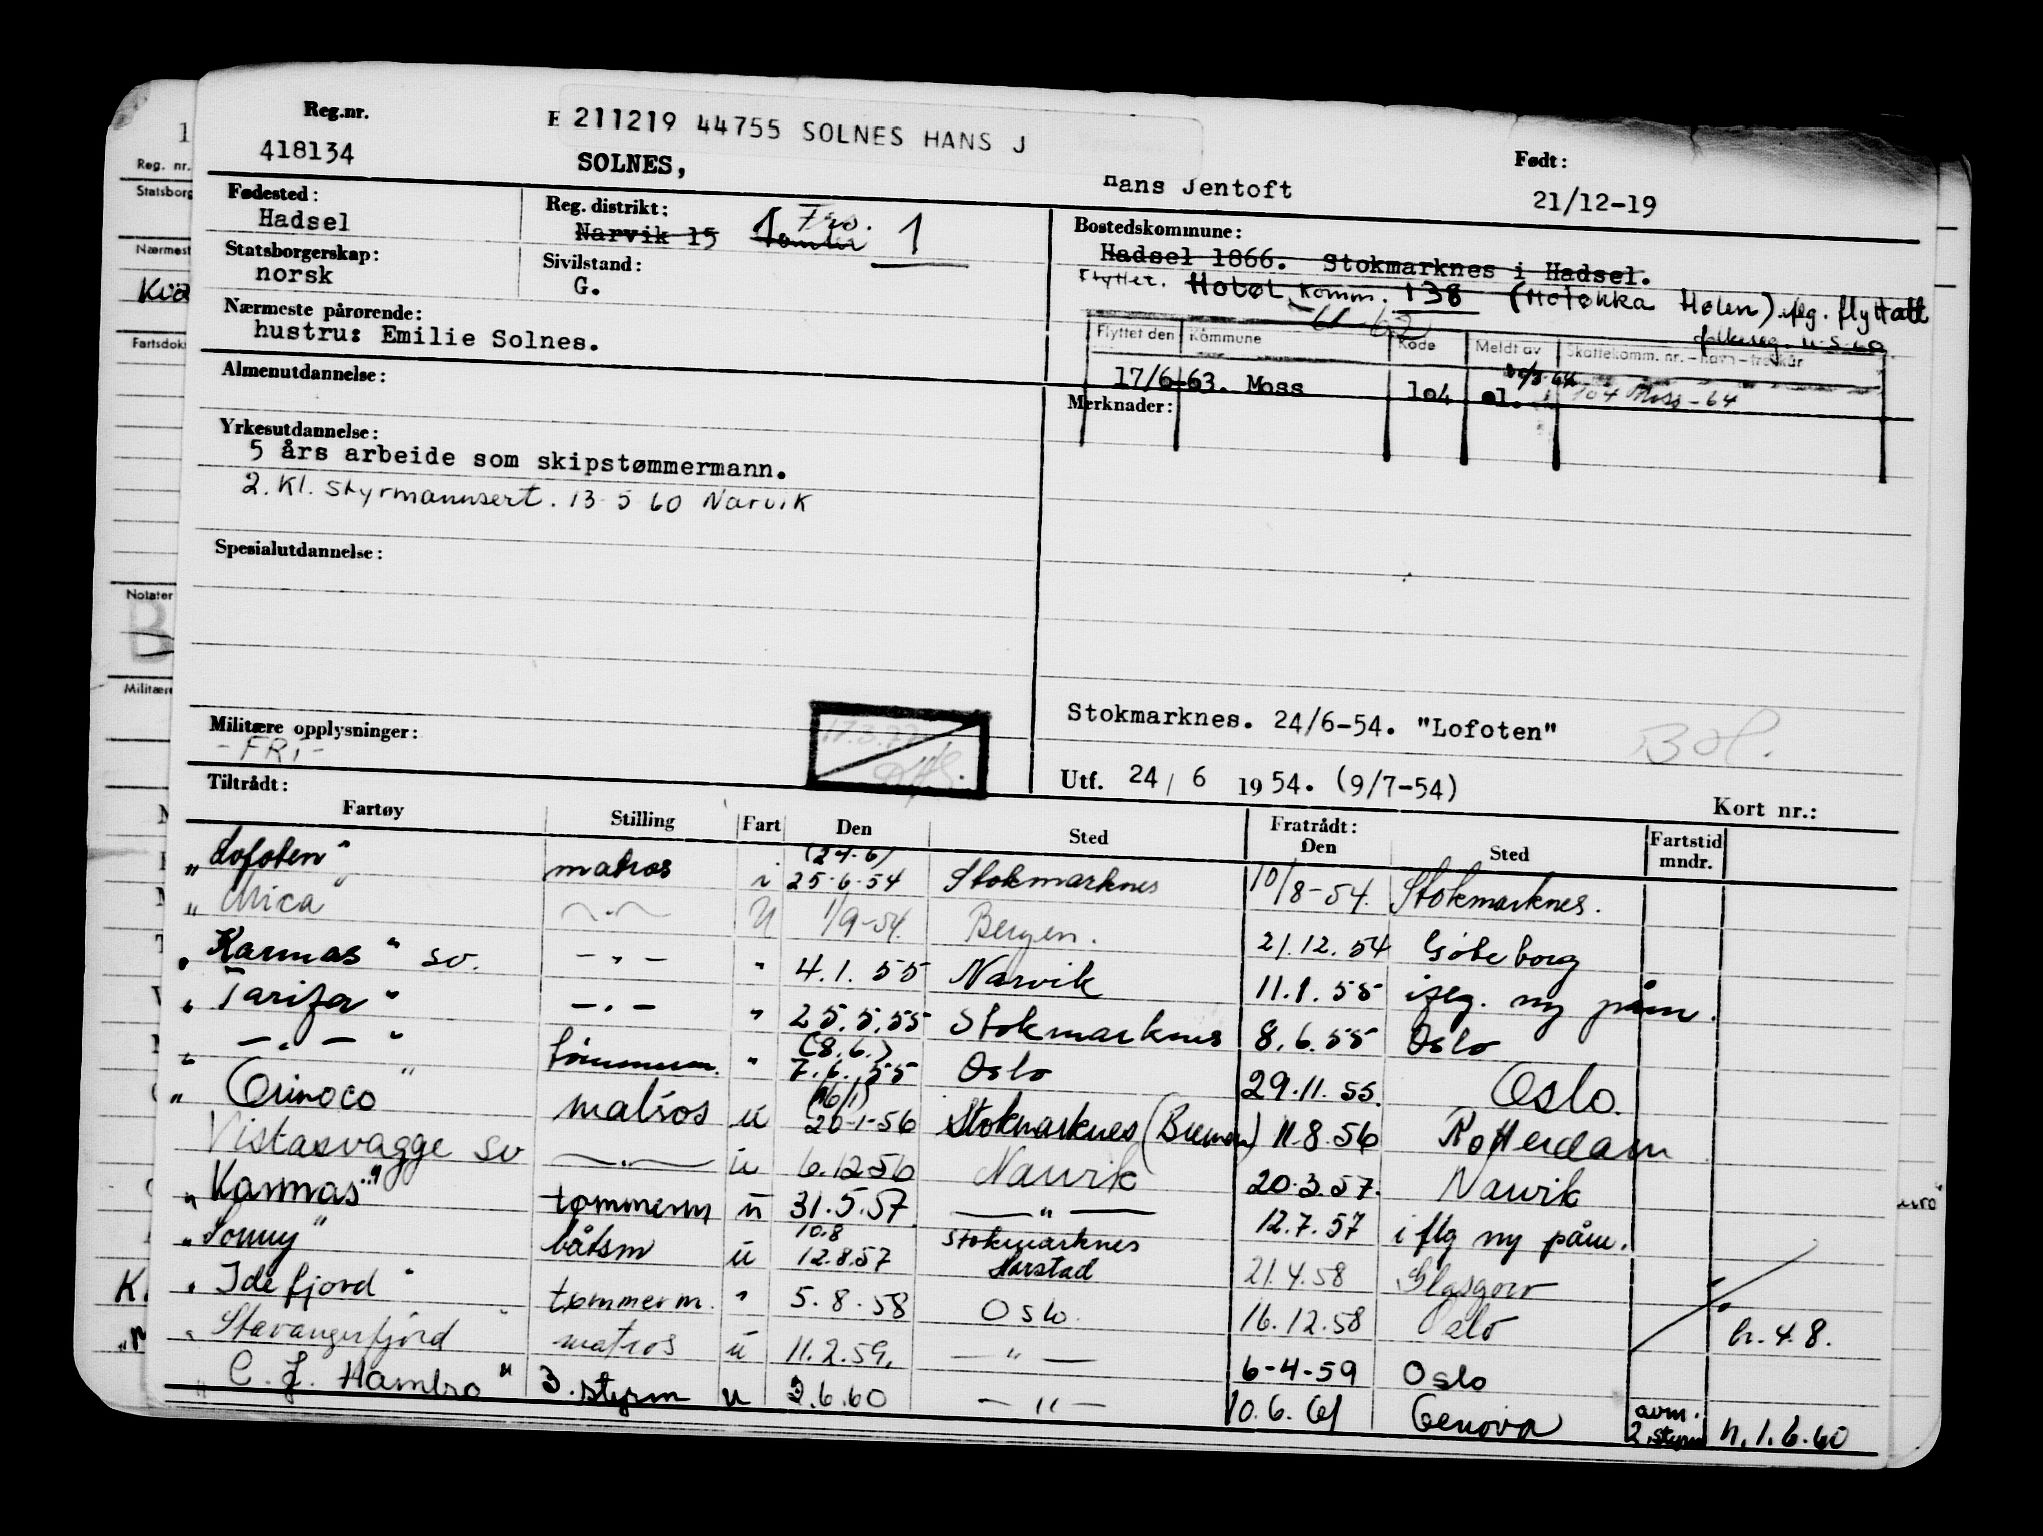 Reg.nr.
418134
E 211219 44755 SOLNES HANS J
SOLNES,
Hans Jentoft
Født:
21/12-19
Fødested:
Hadsel
Reg. distrikt:
Narvik 15 1 1
Bostedskommune:
Hadsel 1866. Stokmarknes i Hadsel.
Flyttet. Hobøl komm. 138 (Holøkka Hølen) iflg. flyttatt
folkereg. 11-5-60
61-62
Statsborgerskap:
norsk
Sivilstand:
G.
Nærmeste pårørende:
hustru: Emilie Solnes.
Flyttet den Kommune Kode Meldt av Skattekomm. nr. - navn - trekkår
17/6-63. Moss 104 104 Moss - 64
Almenutdannelse:
Merknader:
Yrkesutdannelse:
5 års arbeide som skipstømmermann.
2. Kl. styrmannsert. 13-5 60 Narvik
Spesialutdannelse:
Stokmarknes. 24/6-54. "Lofoten"
Militære opplysninger:
- FRI -
Utf. 24 / 6 1954. (9/7-54)
Kort nr.:
Tiltrådt:
Fartøy Stilling Fart Den Sted Fratrådt: Den Sted Fartstid mndr.
„Lofoten" matros i (24.6) 25.6.54 Stokmarknes 10/8-54. Stokmarknes.
„Mica" —„— U 1/9-54. Bergen. 21.12.54 Göteborg
„Karmas" sv. —„— " 4.1.55 Narvik 11.1.55 iflg. ny påm.
„Tarifa" —„— " 25.5.55 Stokmarknes 8.6.55 Oslo
„—„—" tømmerm. " (8.6.) 7.6.55 Oslo 29.11.55. Oslo.
„Orinoco" matros u (16/1) 20-1-56 Stokmarknes (Bremen) 11.8.56 Rotterdam
Vistasvagge sv —„— u 6.12.56 Narvik 20.3.57. Narvik
„Karmas" tømmerm u 31.5.57 —„— 12.7.57 i flg ny påm.
„Sonny" båtsm u 10.8 12.8.57 Stokmarknes Harstad 21.4.58 Glasgow
„Idefjord" tømmerm. " 5.8.58 Oslo. 16.12.58 Oslo h. 4.8.
„Stavangerfjord" matros u 11.2.59. —„— 6-4-59 Oslo
„C. J. Hambro" 3. styrm u 2.6.60 —„— 10.6.61 Genova avm. 2. styrm h. 1.6.60
Reg. nr.
Statsborg
Nærmest
Fartsdok
Notater
B
Militære